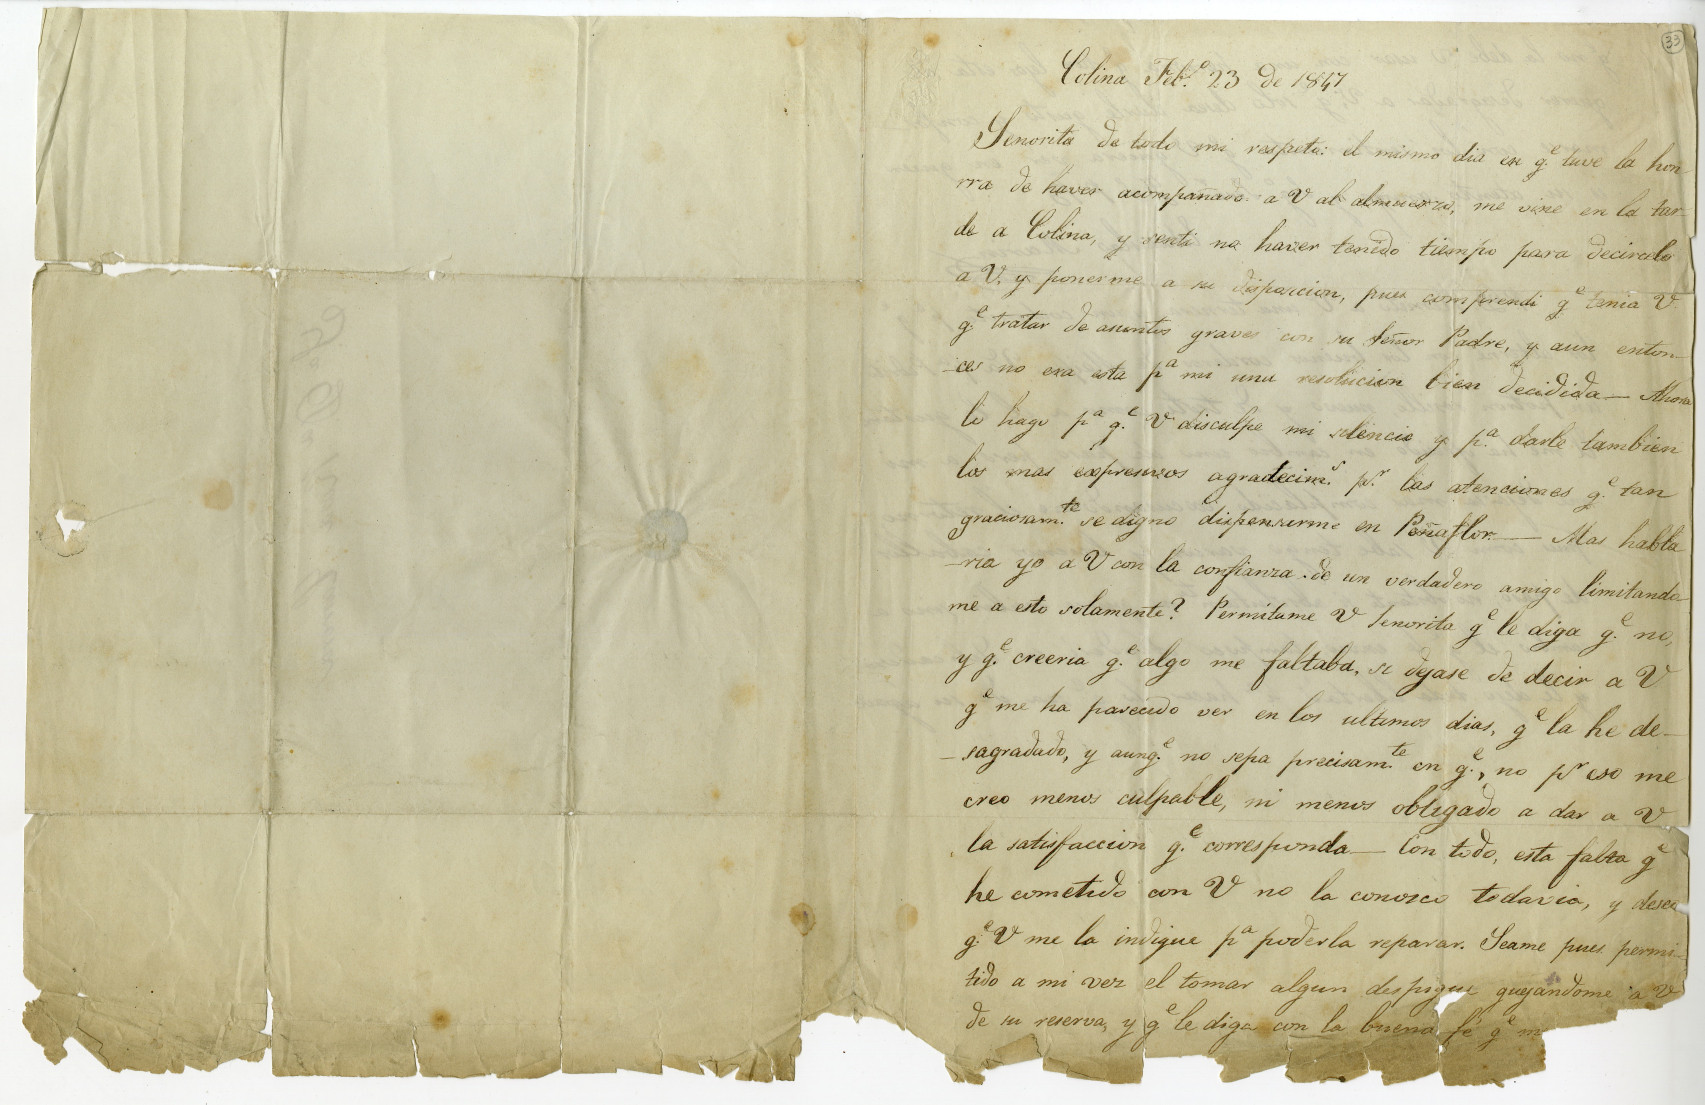 33
Colina Feb.o 23 de 1847
Señorita de todo mi respeto: el mismo dia en q.e tuve la hon
rra de haver acompañado a V al almuerzo, me vine en la tar-
de a Colina, y senti no haver tenido tiempo para decircelo
a V. y ponerme a su disposicion, pues comprendi q.e tenia V
q.e tratar de asuntos graves con su señor Padre, y aun enton-
-ces no era esta p.a mi una resolucion bien decidida — Ahora
lo hago p.a q.e V disculpe mi silencio y p.a darle tambien
los mas expresivos agradecim.s p.r las atenciones q.e tan
graciosam.te se digno dispensarme en Peñaflor. — Mas habla
-ria yo a V con la confianza de un verdadero amigo limitando
me a esto solamente? Permitame V Señorita q.e le diga q.e no,
y q.e creeria q.e algo me faltaba, si dejase de decir a V
q.e me ha parecido ver en los ultimos dias, q.e la he de-
-sagradado, y aunq.e no sepa precisam.te en q.e, no p.r eso me
creo menos culpable, ni menos obligado a dar a V
la satisfaccion q.e corresponda — Con todo, esta falta q.e
he cometido con V no la conosco todavia, y deseo
q.e V me la indique p.a poderla reparar. Seame pues permi-
tido a mi vez el tomar algun despique quejandome a V
de su reserva, y q.e le diga con la buena fé q.e